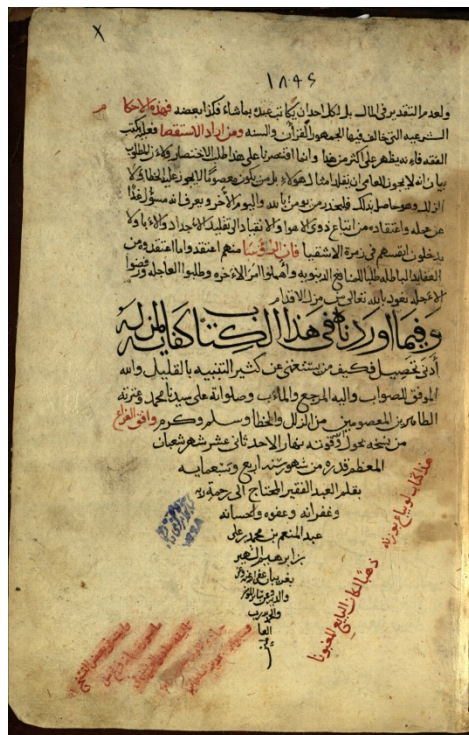 ١٨٤٦
ولعدم التقدير فى المال بل لكل احد ان يكاتب عبده بما شاء فكذا بعضه فهذه الاحكام
الشرعيه التى خالف فيها الجمهور القرآن والسنه ومن اراد الاستقصا فعليه بكتب
الفقه فانه يظهر على اكثر من هذا وانما اقتصرنا على هذا طلبا للاختصار ولان المطلوب
بيان انه لا يجوز للعامى ان يقلد امثال هولاء بل من يكون معصوما لا يجوز عليه الخطا ولا
الزلل وهو حاصل بذلك فليحذر من يومن بالله واليوم الآخر ويعرف انه مسؤل غدا
عن عمله واعتقاده من اتباع ذوى الاهوا والانقياد الى تقليد الاجداد والآبا ولا
يدخلون انفسهم فى زمرة الاشقيا فان الرؤسا منهم اعتقدوا ما اعتقدوه من
العقايد الباطله طلبا للمنافع الدنيويه واهملوا امر الآخره وطلبوا العاجله ورفضوا
الآجله نعوذ بالله تعالى من مزال الاقدام
وفيما اوردناه فى هذا الكتاب كفايه لمن له
ادنى تحصيل فكيف من يستغنى عن كثير التنبيه بالقليل والله
الموفق للصواب واليه المرجع والمآب وصلواته على سيدنا محمد وعترته
الطاهرين المعصومين من الزلل والخطا وسلم وكرم وافق الفراغ
من نسخه بحول الله وقوته نهار الاحد ثانى عشر شهر شعبان
المعظم قدره من شهور سنه اربع وسبعمايه
بقلم العبد الفقير المحتاج الى رحمة ربه
وغفرانه وعفوه واحسانه
عبد المنعم بن محمد بن على
بن ابرهيم الشهير
هذا كتاب لو يباع بوزنه
ذهبا لكان البايع المغبونا